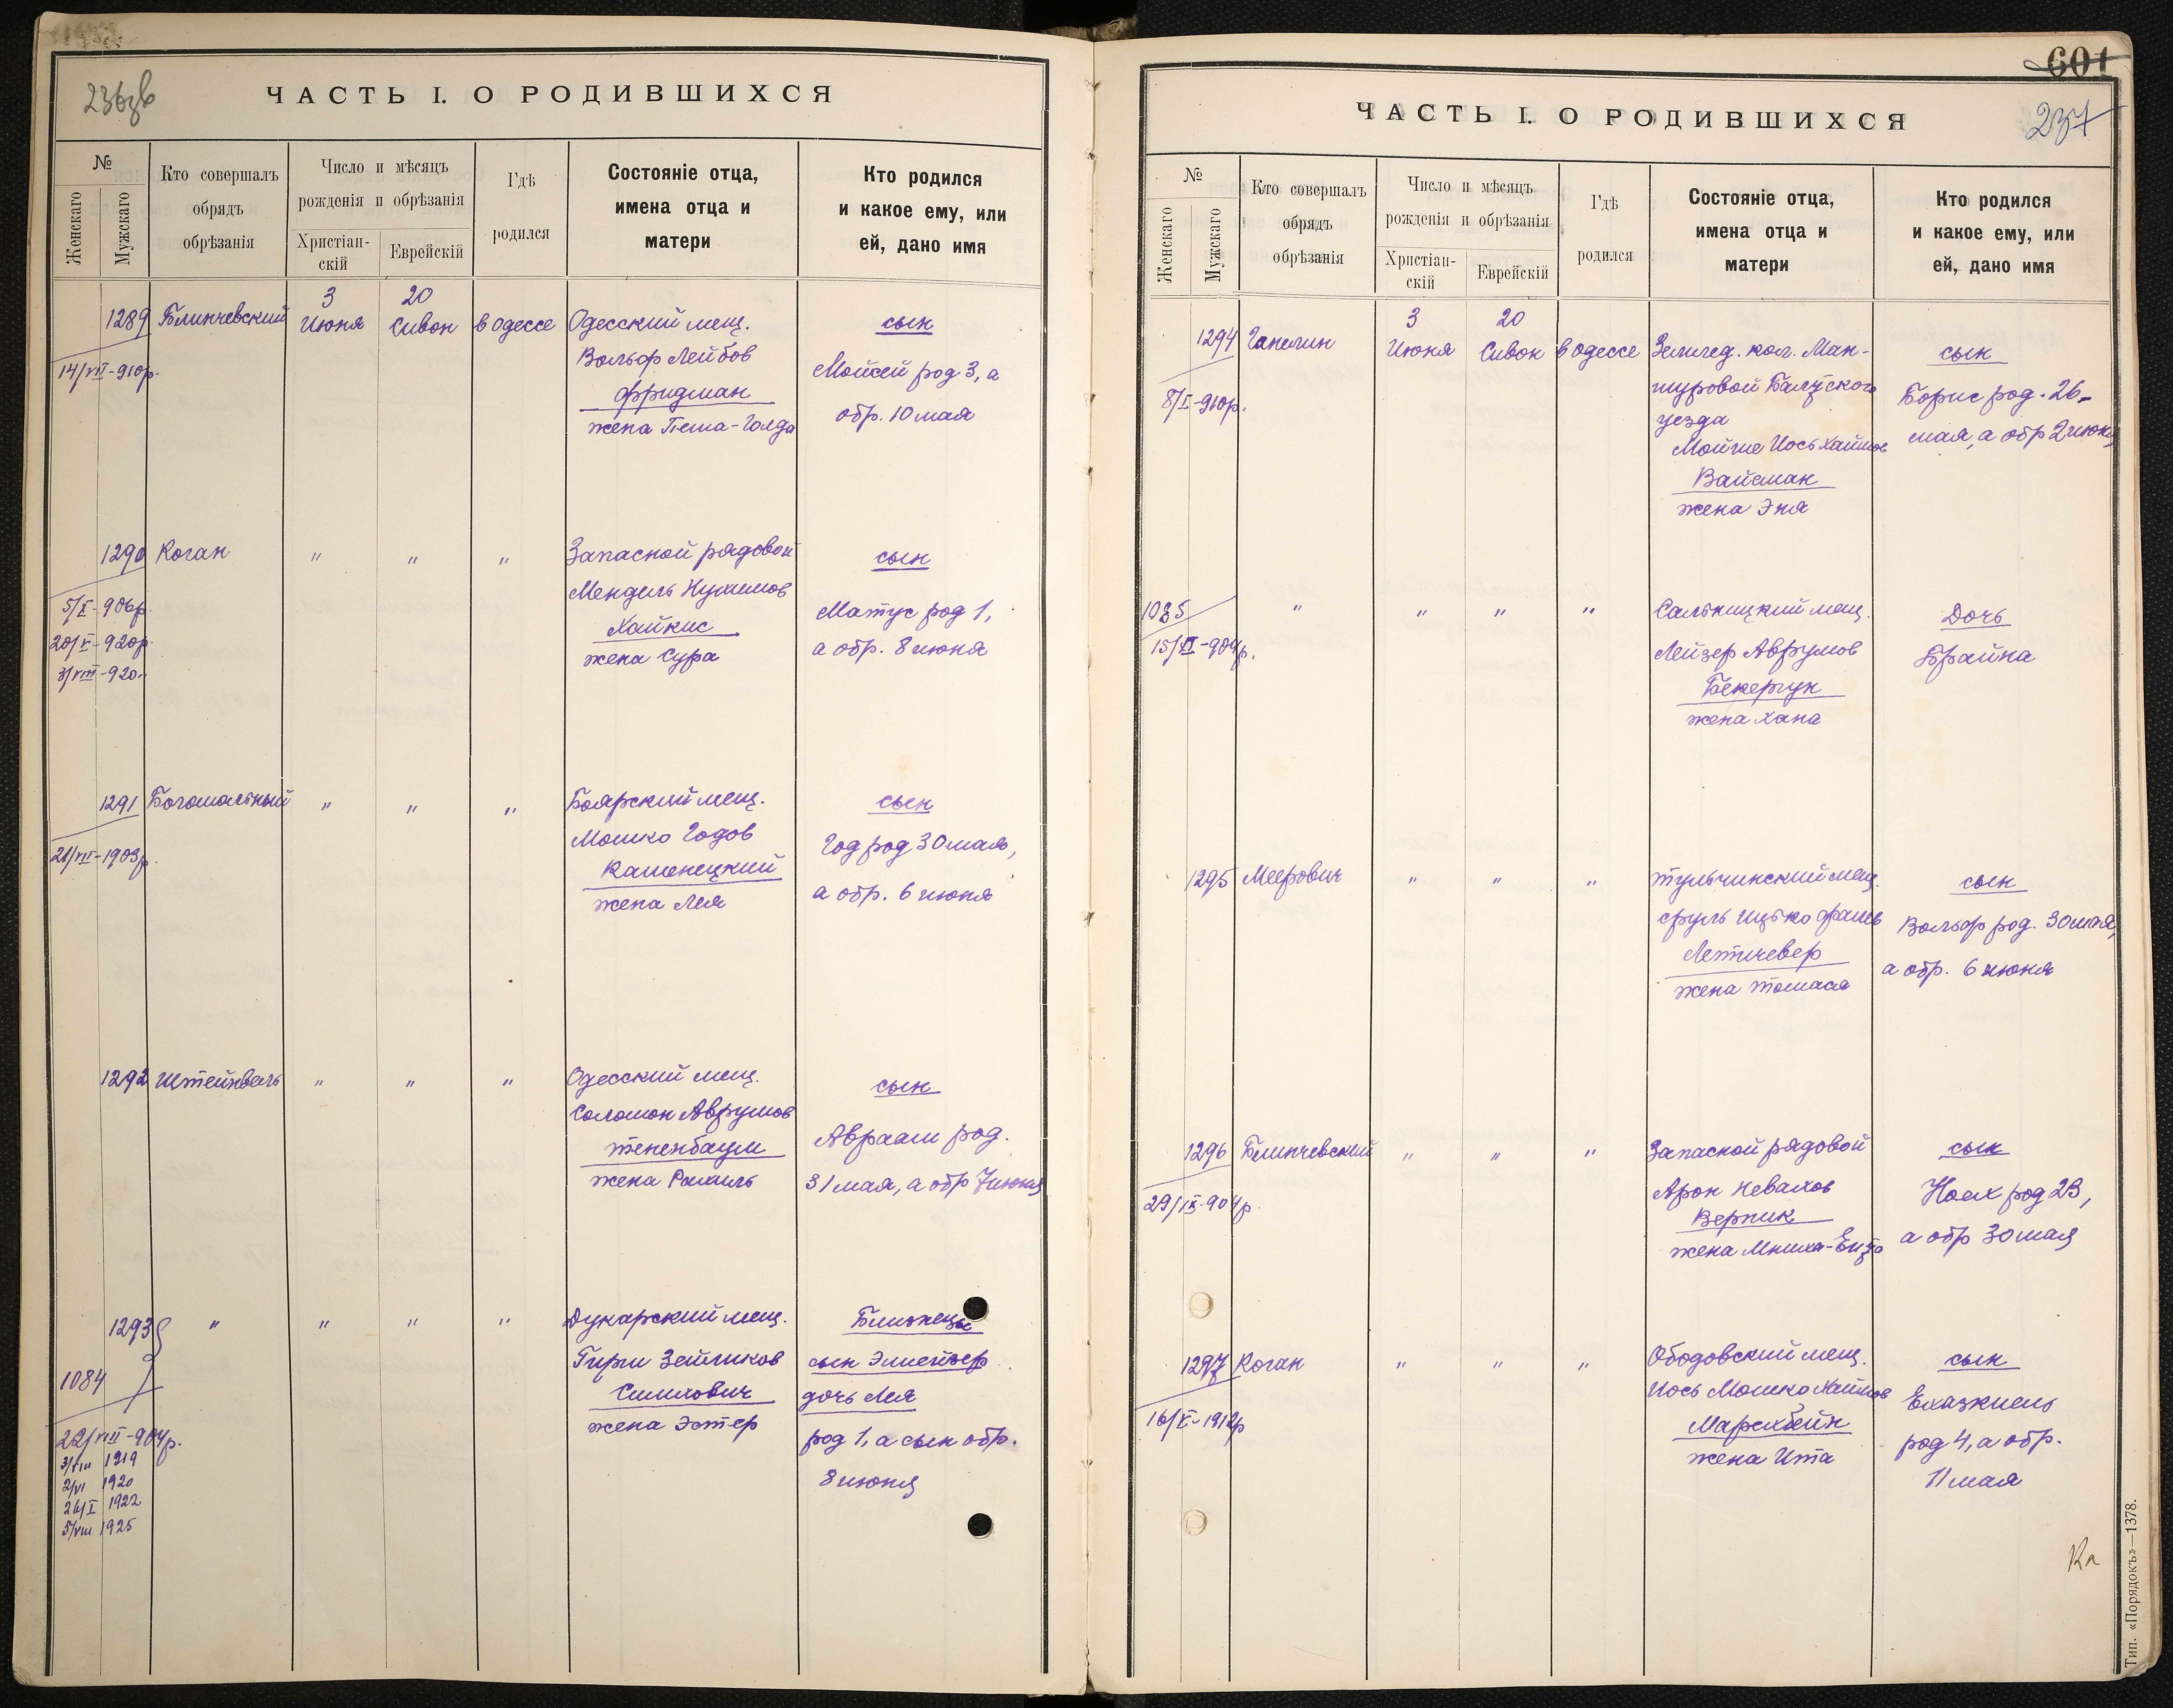 236 зв
ЧАСТЬ I. О РОДИВШИХСЯ
№
Женскаго
Мужскаго
Кто совершалъ
обрядъ
обрѣзанія
Число и мѣсяцъ
рожденія и обрѣзанія
Христіан-
скій
Еврейскій
Гдѣ
родился
Состояніе отца,
имена отца и
матери
Кто родился
и какое ему, или
ей, дано имя
1289
14/VII-910р.
Блинчевский
3
Июня
20
Сивон
в Одессе
Одесский мещ.
Вольф Лейбов
Фридман
жена Песша-Голда
сын
Мойсей род 3, а
обр. 10 мая
1290
5/X-906р.
20/V-920р.
3/VIII-920.
Коган
"
"
"
Запасной рядовой
Мендель Нухимов
Хайкис
жена Сура
сын
Матус род 1,
а обр. 8 июня
1291
21/VII-1903р.
Богомольный
"
"
"
Боярский мещ.
Мошко Годов
Каменецкий
жена Лея
сын
Год род 30 мая,
а обр. 6 июня
1292
Штейнвель
"
"
"
Одесский мещ.
Соломон Аврумов
Тененбаум
жена Рахиль
сын
Авраам род.
31 мая, а обр 7 июня
1293
1084
22/VIII-904р.
3/VIII 1919
2/VI 1920
26/I 1922
5/VIII 1925
"
"
"
"
Дукарский мещ.
Гирш Зейликов
Симхович
жена Эстер
Близнецы
сын Элиейзер
дочь Лея
род 1, а сын обр.
8 июня
601
237
ЧАСТЬ I. О РОДИВШИХСЯ
№
Женскаго
Мужскаго
Кто совершалъ
обрядъ
обрѣзанія
Число и мѣсяцъ
рожденія и обрѣзанія
Христіан-
скій
Еврейскій
Гдѣ
родился
Состояніе отца,
имена отца и
матери
Кто родился
и какое ему, или
ей, дано имя
1294
8/I-910р.
Ганелин
3
Июня
20
Сивон
в Одессе
Землед. кол. Ман-
журовой Балтского
уезда
Мойше Иось Хаимов
Вайсман
жена Эня
сын
Борис род. 26-
мая, а обр 2 июня
1035
15/VI-904р.
"
"
"
"
Сальницкий мещ.
Лейзер Аврумов
Бекерчук
жена Хана
Дочь
Брайна
1295
Меерович
"
"
"
Тульчинский мещ.
Сруль Ицько
Летичевер
жена
сын
Вольф род. 30 мая,
а обр. 6 июня
1296
29/IX-904р.
Блинчевский
"
"
"
Запасной рядовой
Арон Невахов
Верник
жена
сын
Ноех род 23,
а обр 30 мая
1297
16/X-1912р
Коган
"
"
"
Ободовский мещ.
Иось Мошко Хаимов
Марехбейн
жена Ита
сын
Ехазкиель
род 4, а обр.
11 мая
Тип. «Порядокъ»—1378.